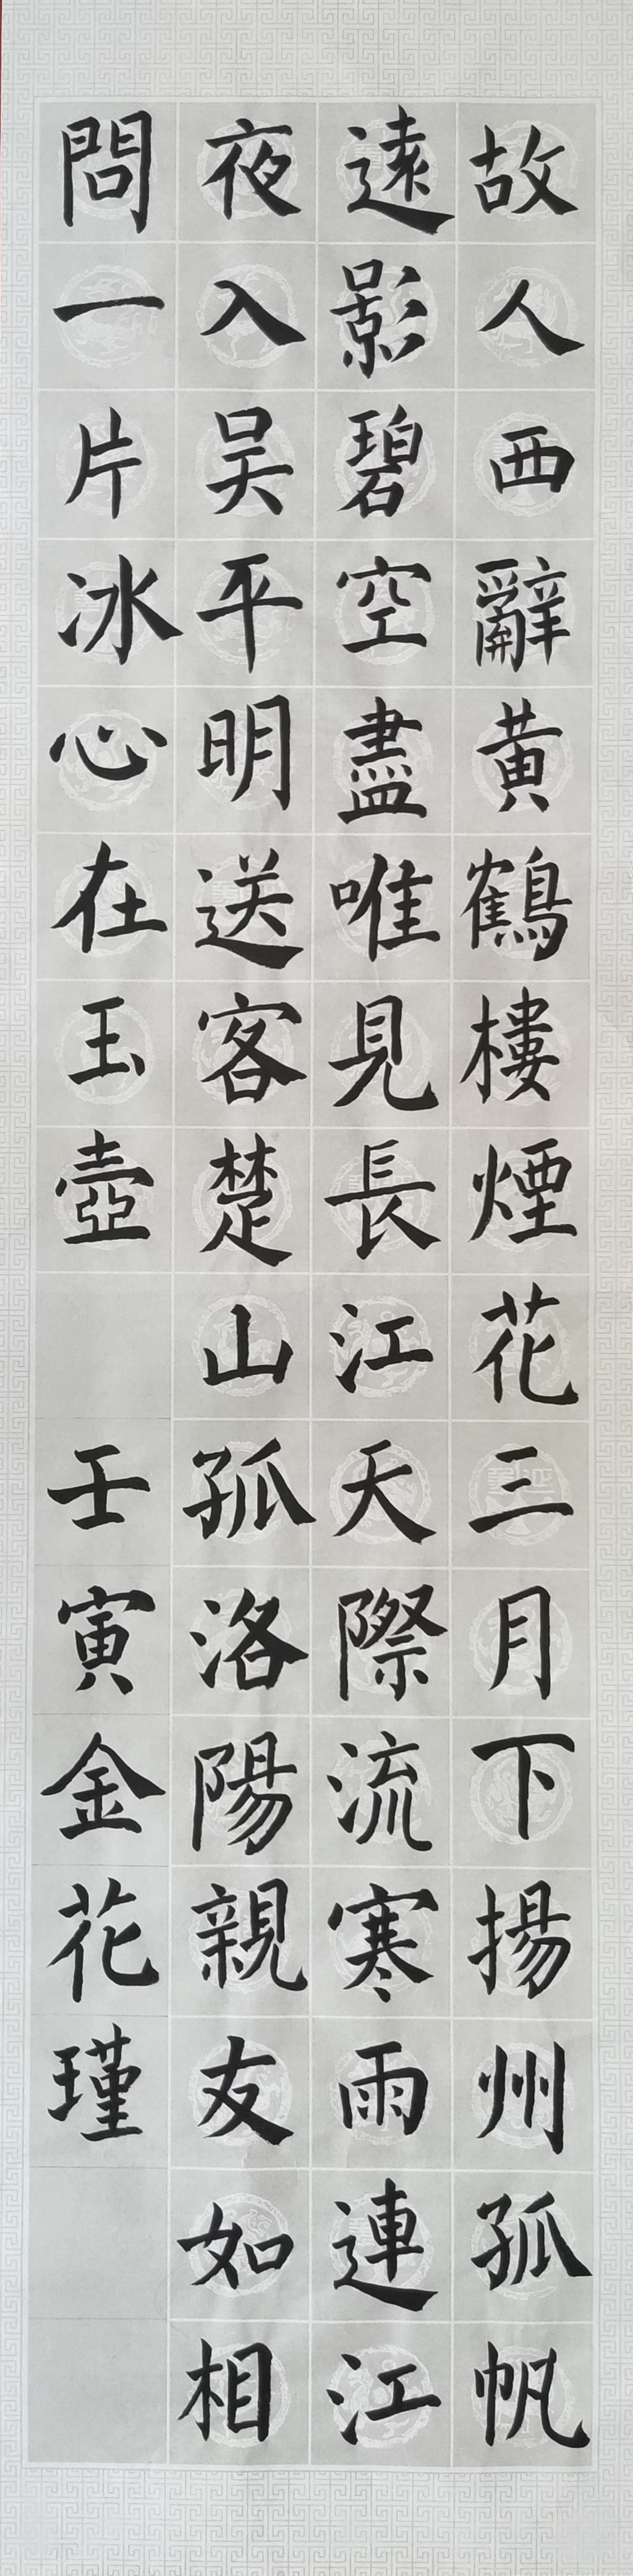 故人西辭黃鶴樓煙花三月下揚州孤帆
遠影碧空盡唯見長江天際流寒雨連江
夜入吴平明送客楚山孤洛陽親友如相
問一片冰心在玉壺壬寅金花瑾